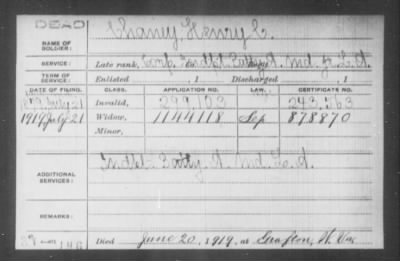 DEAD
NAME OF SOLDIER: Chaney, Henry C.
SERVICE: Late rank, Comp. Indpt. Batty A. Md. L. A.
TERM OF SERVICE: Enlisted , 1 Discharged , 1
DATE OF FILING. CLASS. APPLICATION NO. LAW. CERTIFICATE NO.
1879 July 21 Invalid, 299,103 243,563
1919 July 21 Widow, 1144118 Sep 878870
Minor,
ADDITIONAL SERVICES: Indpt. Batty. A. Md. L. A.
REMARKS:
Died June 20, 1919, at Grafton, W. Va.